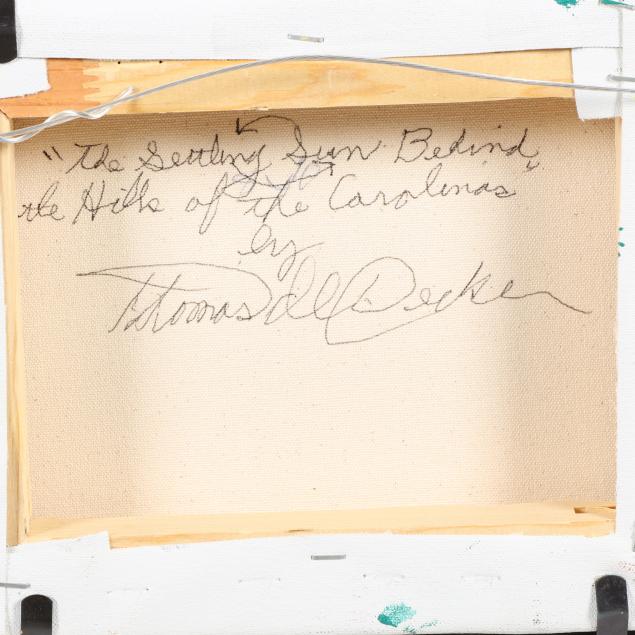 "The Settling Sun Behind
the Hills of the Carolinas"
by
Thomas Decker